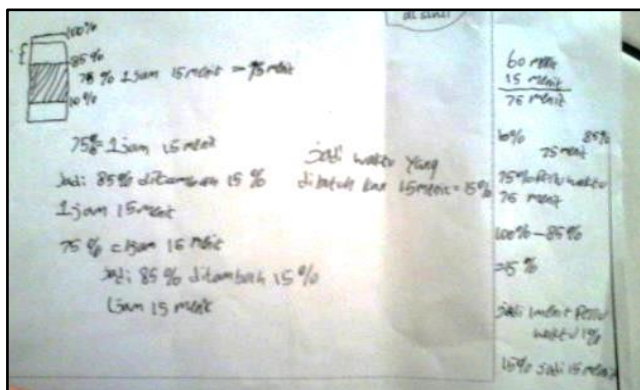 di sini
100%
85%
75% 1 jam 15 menit = 75 menit
10%
75% = 1 jam 15 menit
Jadi 85% ditambah 15%
1 jam 15 menit
75% = 1 jam 15 menit
jadi 85% ditambah 15%
1 jam 15 menit
jadi waktu yang
dibutuhkan 15 menit = 15%
60 menit
15 menit
75 menit
10% 85%
75 menit
75% Perlu waktu
75 menit
100% - 85%
= 15%
jadi 1 menit Perlu
waktu 1%
15% jadi 15 menit